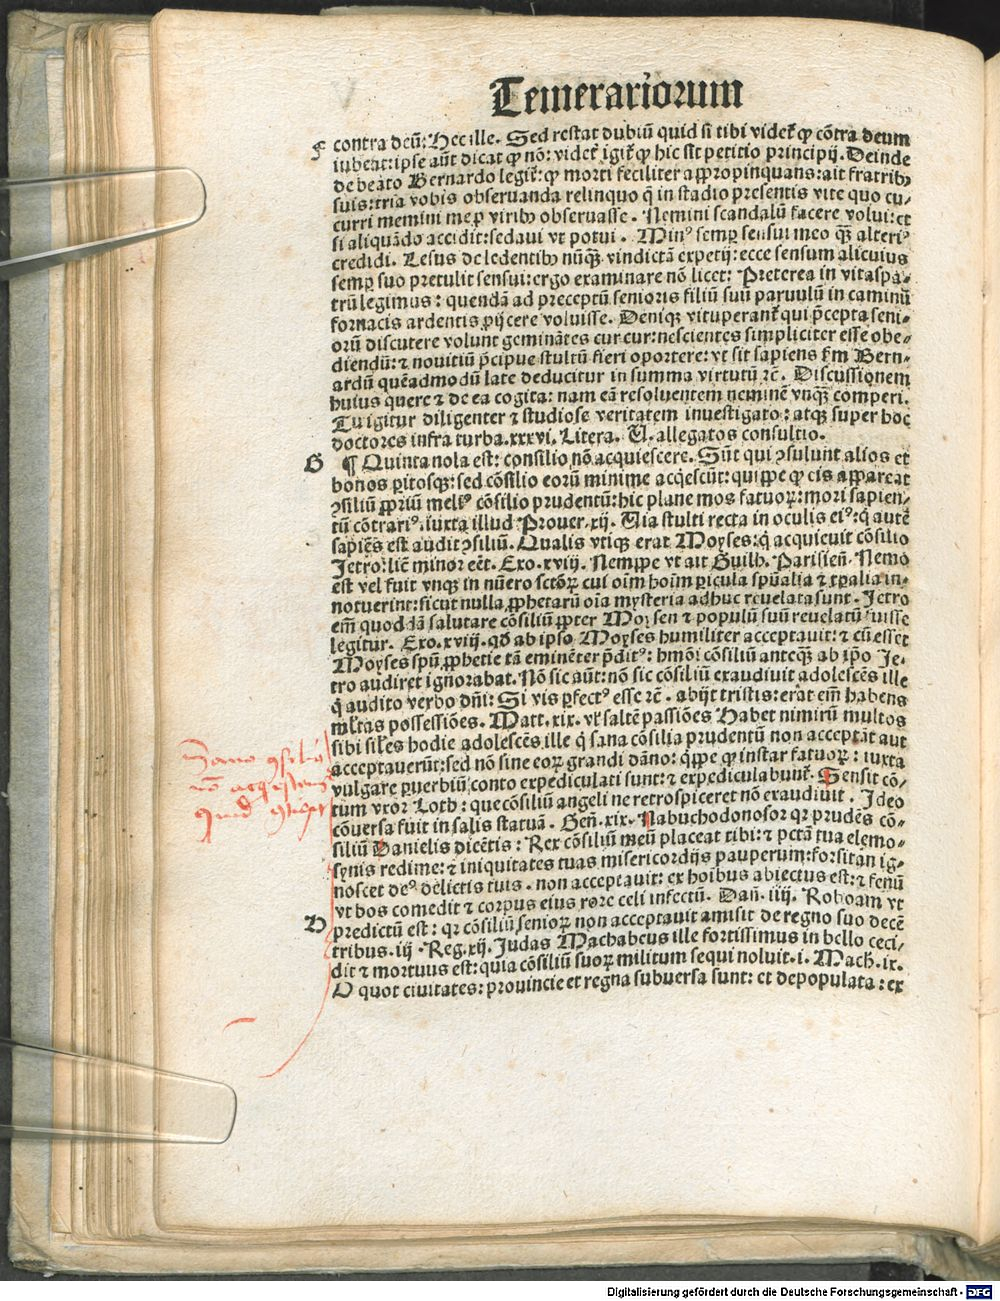 Temerariorum
F contra deū: Hec ille. Sed restat dubiū quid si tibi videt̄ ꝙ cōtra deum
iubeat: ipse aūt dicat ꝙ nō: videt̄ igit̄ ꝙ hic sit petitio principij. Deinde
de beato Bernardo legit̄: ꝙ morti feciliter appropinquans: ait fratribꝰ
suis: tria vobis obseruanda relinquo q̄ in stadio presentis vite quo cu-
curri memini me ꝑ viribꝰ obseruasse. Nemini scandalū facere volui: et
si aliquādo accidit: sedaui vt potui. Minꝰ semꝑ sensui meo qꝫ alteriꝰ
credidi. Lesus de ledentibꝰ nūqꝫ vindictā expetij: ecce sensum alicuius
semꝑ suo pretulit sensui: ergo examinare nō licet: Preterea in vitaspa-
trū legimus: quendā ad preceptū senioris filiū suū paruulū in caminū
fornacis ardentis ꝓijcere voluisse. Deniqꝫ vituperant̄ qui p̄cepta seni-
orū discutere volunt geminātes cur cur: nescientes simpliciter esse obe-
diendū: ⁊ nouitiū p̄cipue stultū fieri oportere: vt sit sapiens ẜm Bern-
ardū quēadmodū late deducitur in summa virtutū ⁊c̄. Discussionem
huius quere ⁊ de ea cogita: nam eā resoluentem neminē vnqꝫ comperi.
Tu igitur diligenter ⁊ studiose veritatem inuestigato: atqꝫ super hoc
doctores infra turba.xxxvi. Litera. U. allegatos consultio.
G ¶ Quinta nola est: consilio nō acquiescere. Sūt qui ꝯsulunt alios et
bonos ꝑitosqꝫ: sed cōsilio eorū minime acq̄escūt: quippe ꝙ eis appareat
ꝯsiliū ꝓpriū meliꝰ cōsilio prudentū: hic plane mos fatuoꝝ: mori sapien-
tū cōtrariꝰ. iuxta illud Prouer.xij. Uia stulti recta in oculis eiꝰ: q̄ autē
sapiēs est audit ꝯsiliū. Qualis vtiqꝫ erat Moyses: q̄ acquieuit cōsilio
Jetro: licꝫ minor eēt. Exo.xviij. Nemppe vt ait Guilh. Parisien̄. Nemo
est vel fuit vnqꝫ in nūero sctōꝝ cui oīm hoīm ꝑicula spūalia ⁊ tꝑalia in-
notuerint: sicut nulla ꝓphetarū oīa mysteria adhuc reuelata sunt. Jetro
em̄ quoddā salutare cōsiliū ꝓpter Moysen ⁊ populū suū reuelatū fuisse
legitur. Exo.xviij. qd̄ ab ipso Moyses humiliter acceptauit: ⁊ cū esset
Moyses spū ꝓphetie tā eminēter p̄ditꝰ: hmōi cōsiliū anteqꝫ ab ip̄o Je-
tro audiret ignorabat. Nō sic aūt: nō sic cōsiliū exaudiuit adolescēs ille
q̄ audito verbo dn̄i: Si vis ꝑfectꝰ esse ⁊c̄. abijt tristis: erat em̄ habens
ml̄tas possessiōes. Matt.xix. vl̓ saltē passiōes Habet nimirū multos
sibi siles hodie adolescēs ille q̄ sana cōsilia prudentū non acceptāt aut
acceptauerūt: sed nō sine eoꝝ grandi dāno: q̄ppe ꝙ instar fatuoꝝ: iuxta
vulgare ꝓuerbiū conto expediculati sunt: ⁊ expediculabunt̄. Sensit cō-
tum vxor Loth: que cōsiliū angeli ne retrospiceret nō exaudiuit. Ideo
cōuersa fuit in salis statuā. Gen̄.xix. Nabuchodonosor qꝛ prudēs cō-
siliū Danielis dicētis: Rex cōsiliū meū placeat tibi: ⁊ pctā tua elemo-
synis redime: ⁊ iniquitates tuas misericordijs pauperum: forsitan ig-
noscet deꝰ delictis tuis. non acceptauit: ex hoībus abiectus est: ⁊ fenū
vt bos comedit ⁊ corpus eius rore celi infectū. Dan̄.iiij. Roboam vt
H predictū est: qꝛ cōsiliū senioꝝ non acceptauit amisit de regno suo decē
tribus.iij. Reg.xij. Judas Machabeus ille fortissimus in bello ceci-
dit ⁊ mortuus est: quia cōsiliū suoꝝ militum sequi noluit.i. Mach.ix.
O quot ciuitates: prouincie et regna subuersa sunt: et depopulata: ex
nō
Digitalisierung gefördert durch die Deutsche Forschungsgemeinschaft - DFG